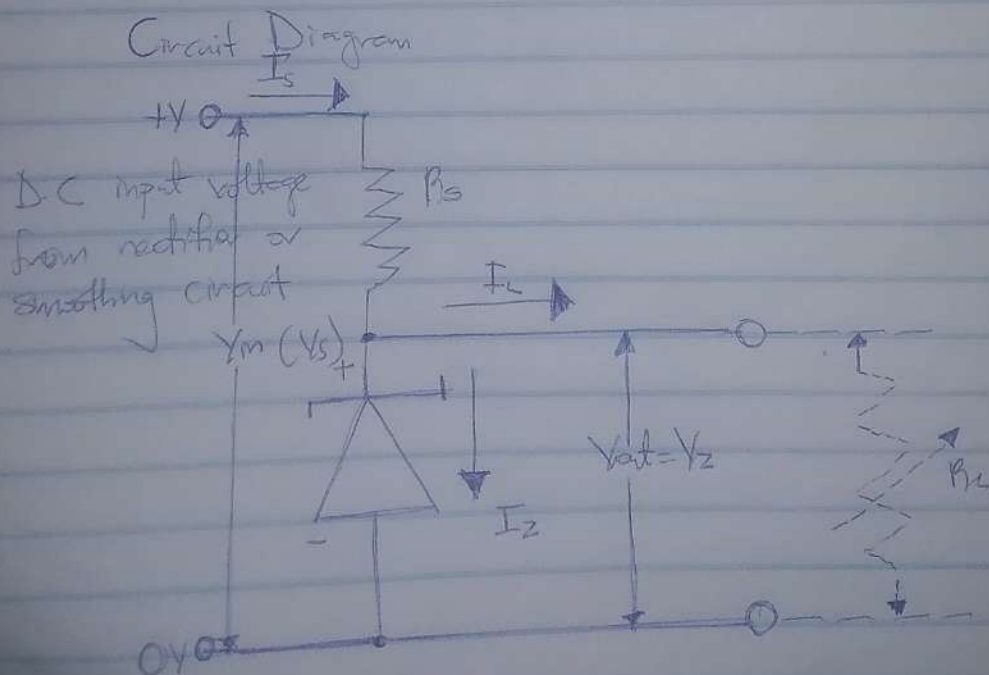 Circuit Diagram
Is
+V
D.C input voltage
from rectifier or
smoothing circuit
Rs
IL
Vin (Vs)
+
Vout = Vz
RL
-
Iz
0V